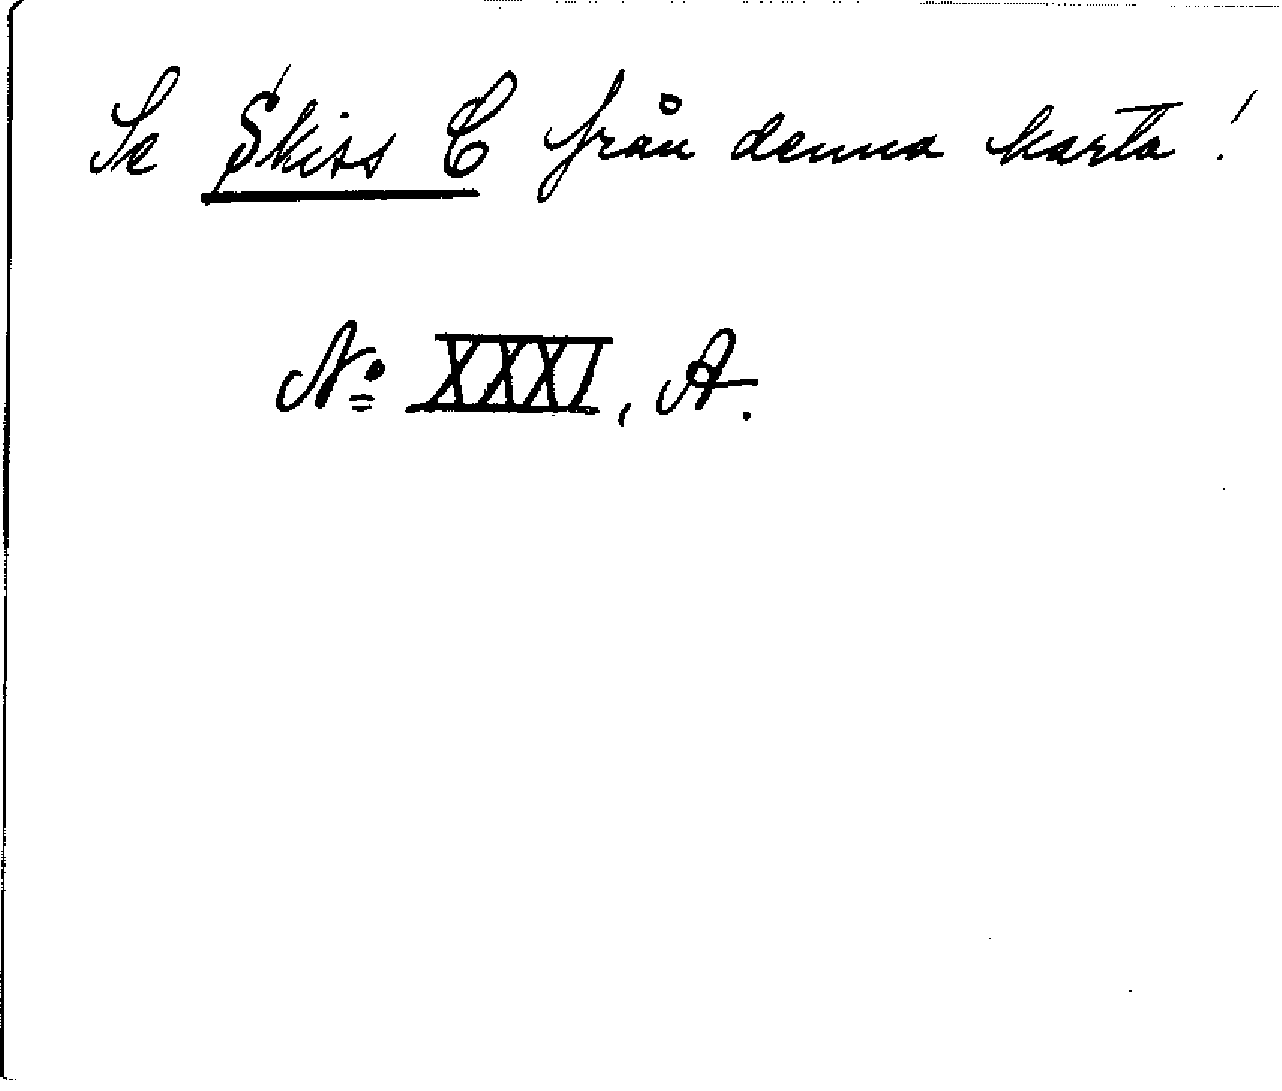 Se Skiss C från denna karta!
No XXXI, A.